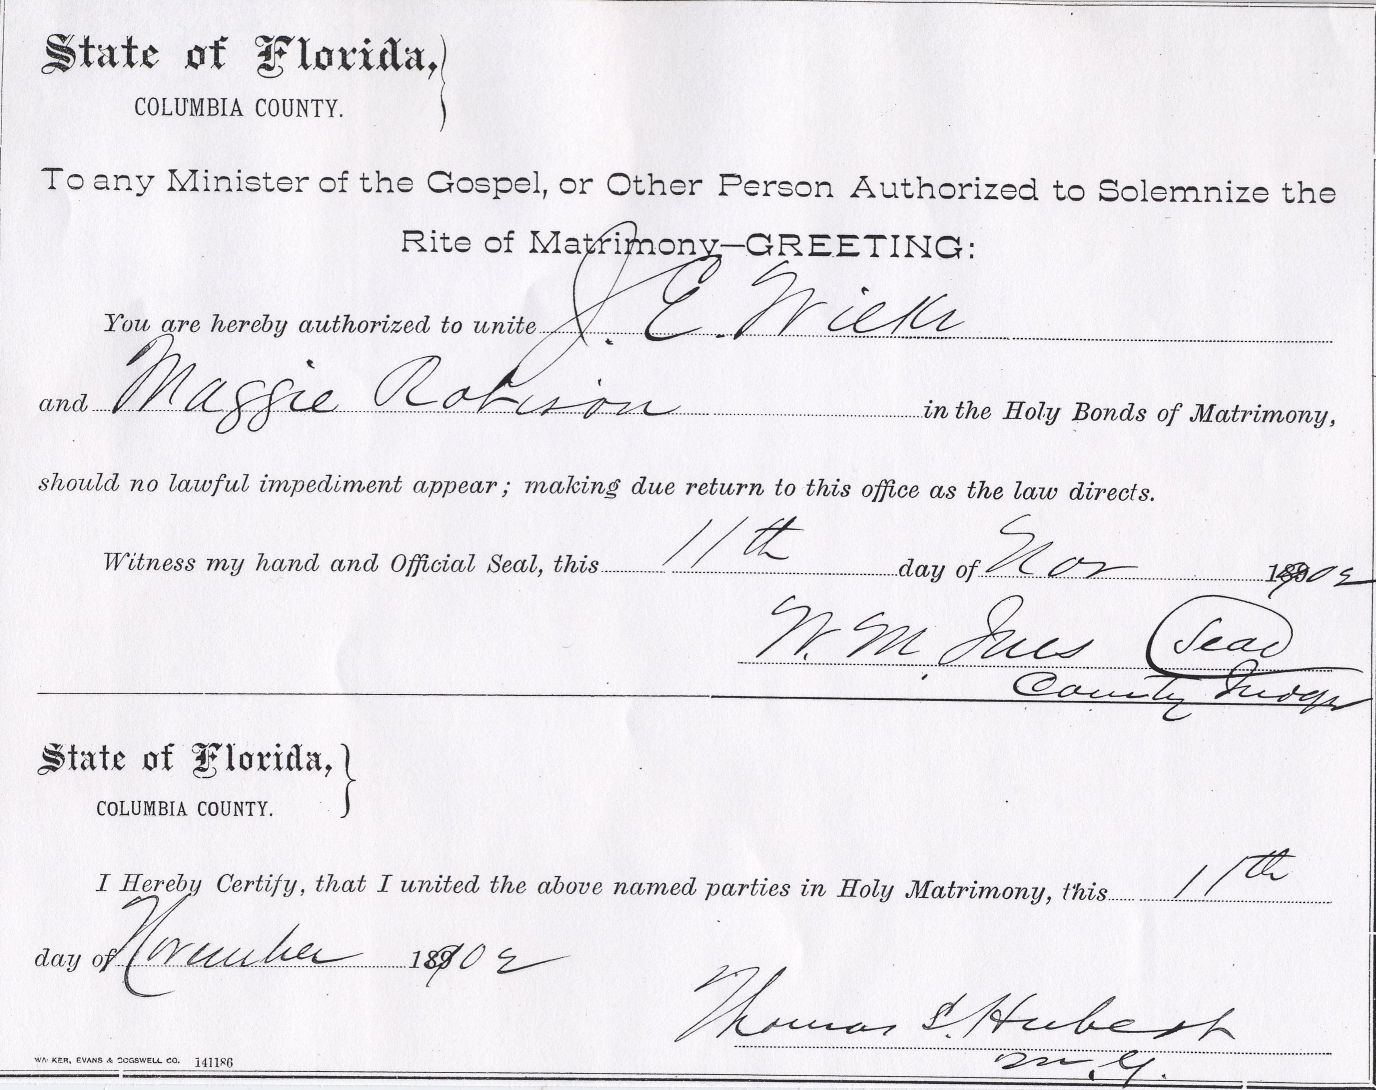 State of Florida,
COLUMBIA COUNTY.
To any Minister of the Gospel, or Other Person Authorized to Solemnize the
Rite of Matrimony—GREETING:
You are hereby authorized to unite J. E. Wicks
and Maggie Robison in the Holy Bonds of Matrimony,
should no lawful impediment appear; making due return to this office as the law directs.
Witness my hand and Official Seal, this 11th day of Nov 1902
W. M. Ives (Seal)
County Judge
State of Florida,
COLUMBIA COUNTY.
I Hereby Certify, that I united the above named parties in Holy Matrimony, this 11th
day of November 1902
Thomas S. Hubert
M. G.
WALKER, EVANS & COGSWELL CO. 141186